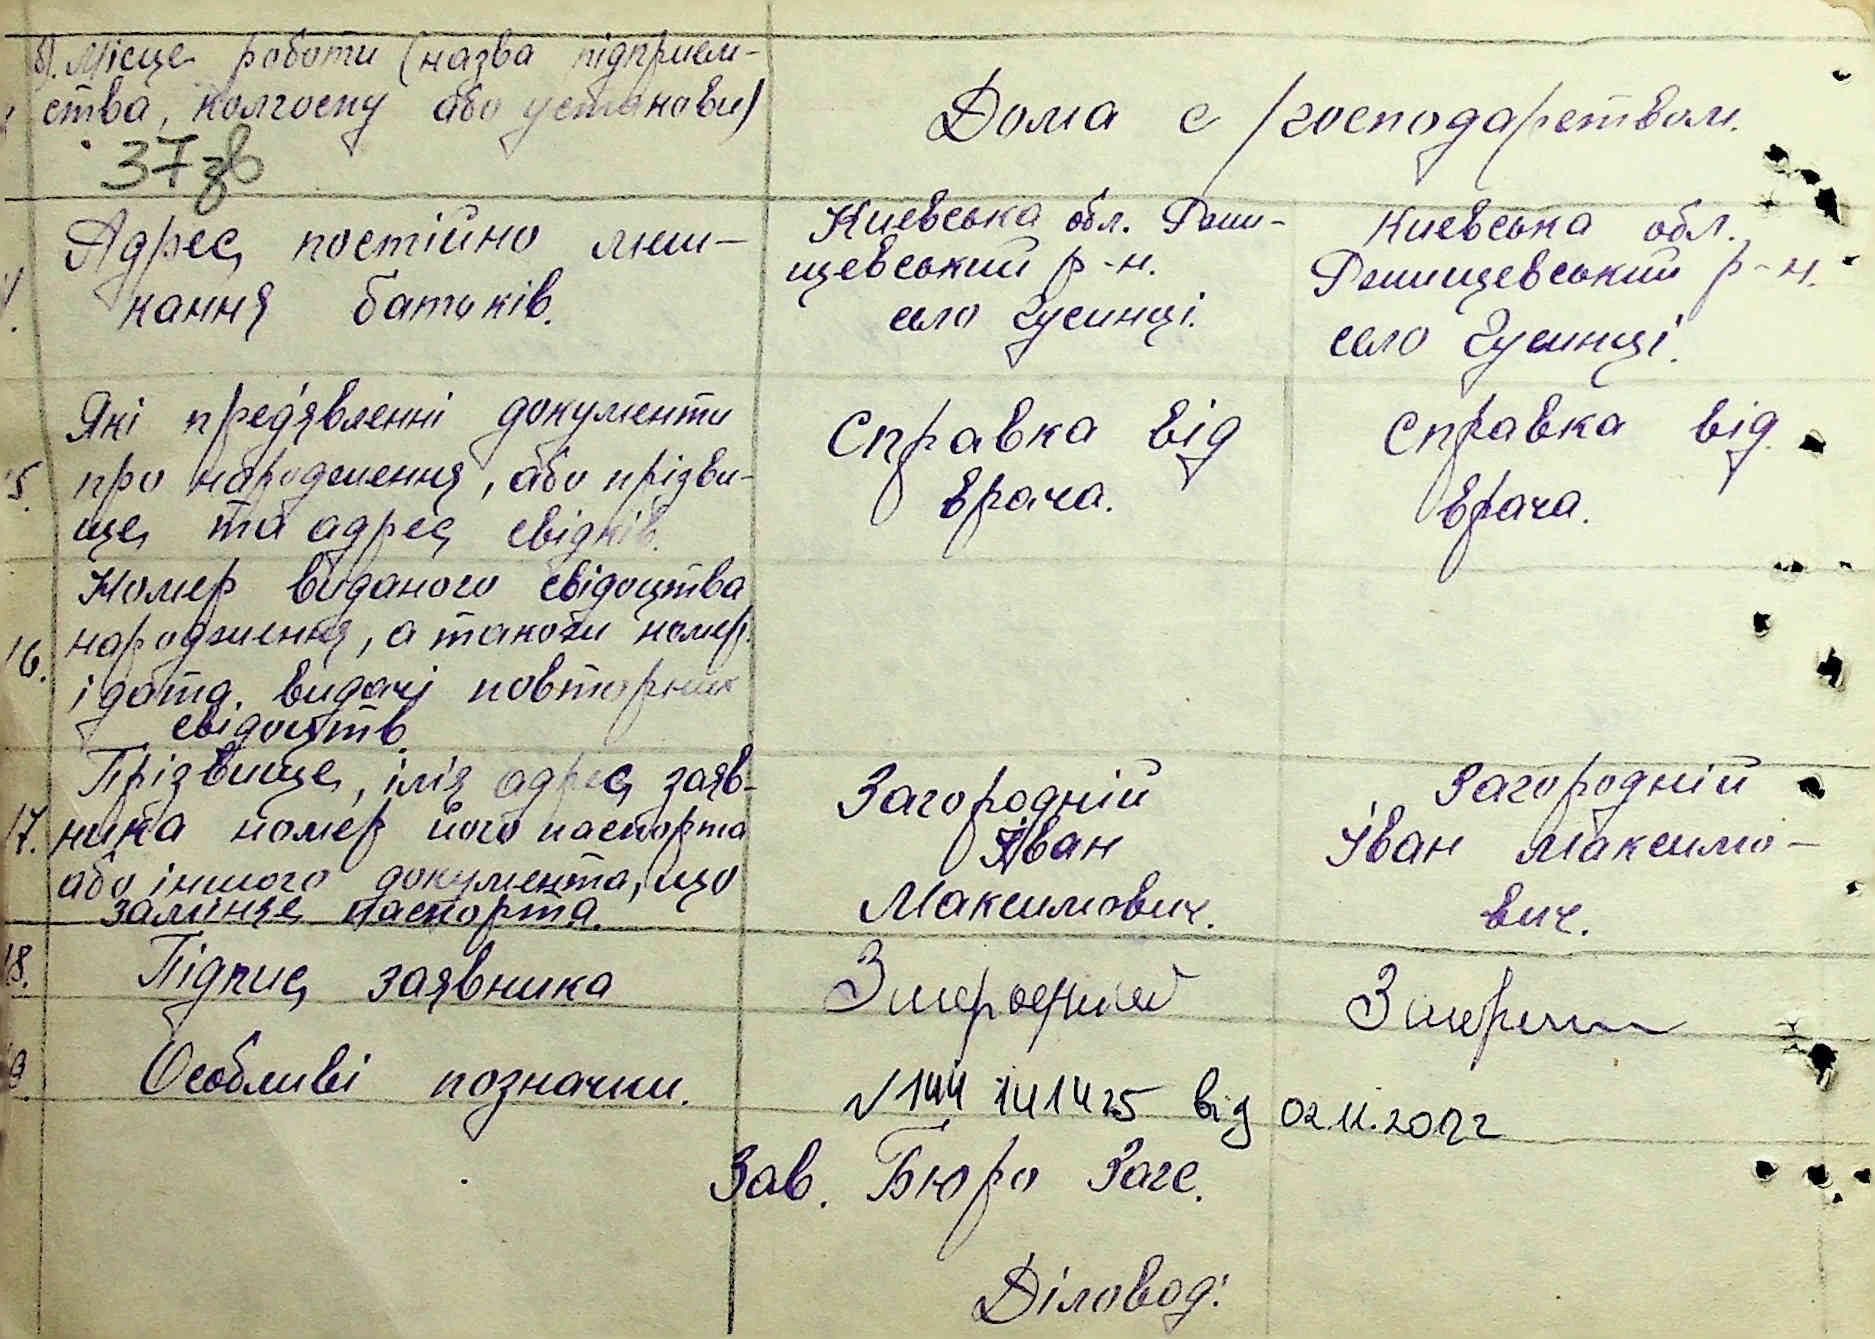 б). Місце роботи (назва підприєм-
ства, колгоспу або установи)
Дома с /господарством.
37зв
Адрес постійно меш-
кання батьків.
Киевська обл. Ржи-
щевський р-н.
село Гусинці.
Киевська обл.
Ржищевський р-н.
село Гусинці.
15.
Які предʼявленні документи
про народження, або прізви-
ще та адрес свідків.
Справка від
врача.
Справка від
врача.
16.
Номер виданого свідоцтва
народження, а також номер
і дата видачі повторних
свідоцтв.
17.
Прізвище, імя адрес заяв-
ника номер його паспорта
або іншого документа, що
заміняє паспорта.
Загородній
Іван
Максимович.
Загородній
Іван Максимо-
вич.
18.
Підпис заявника
19.
Особливі позначки.
від 02.11.2012
Зав. Бюро Загс.
Діловод: